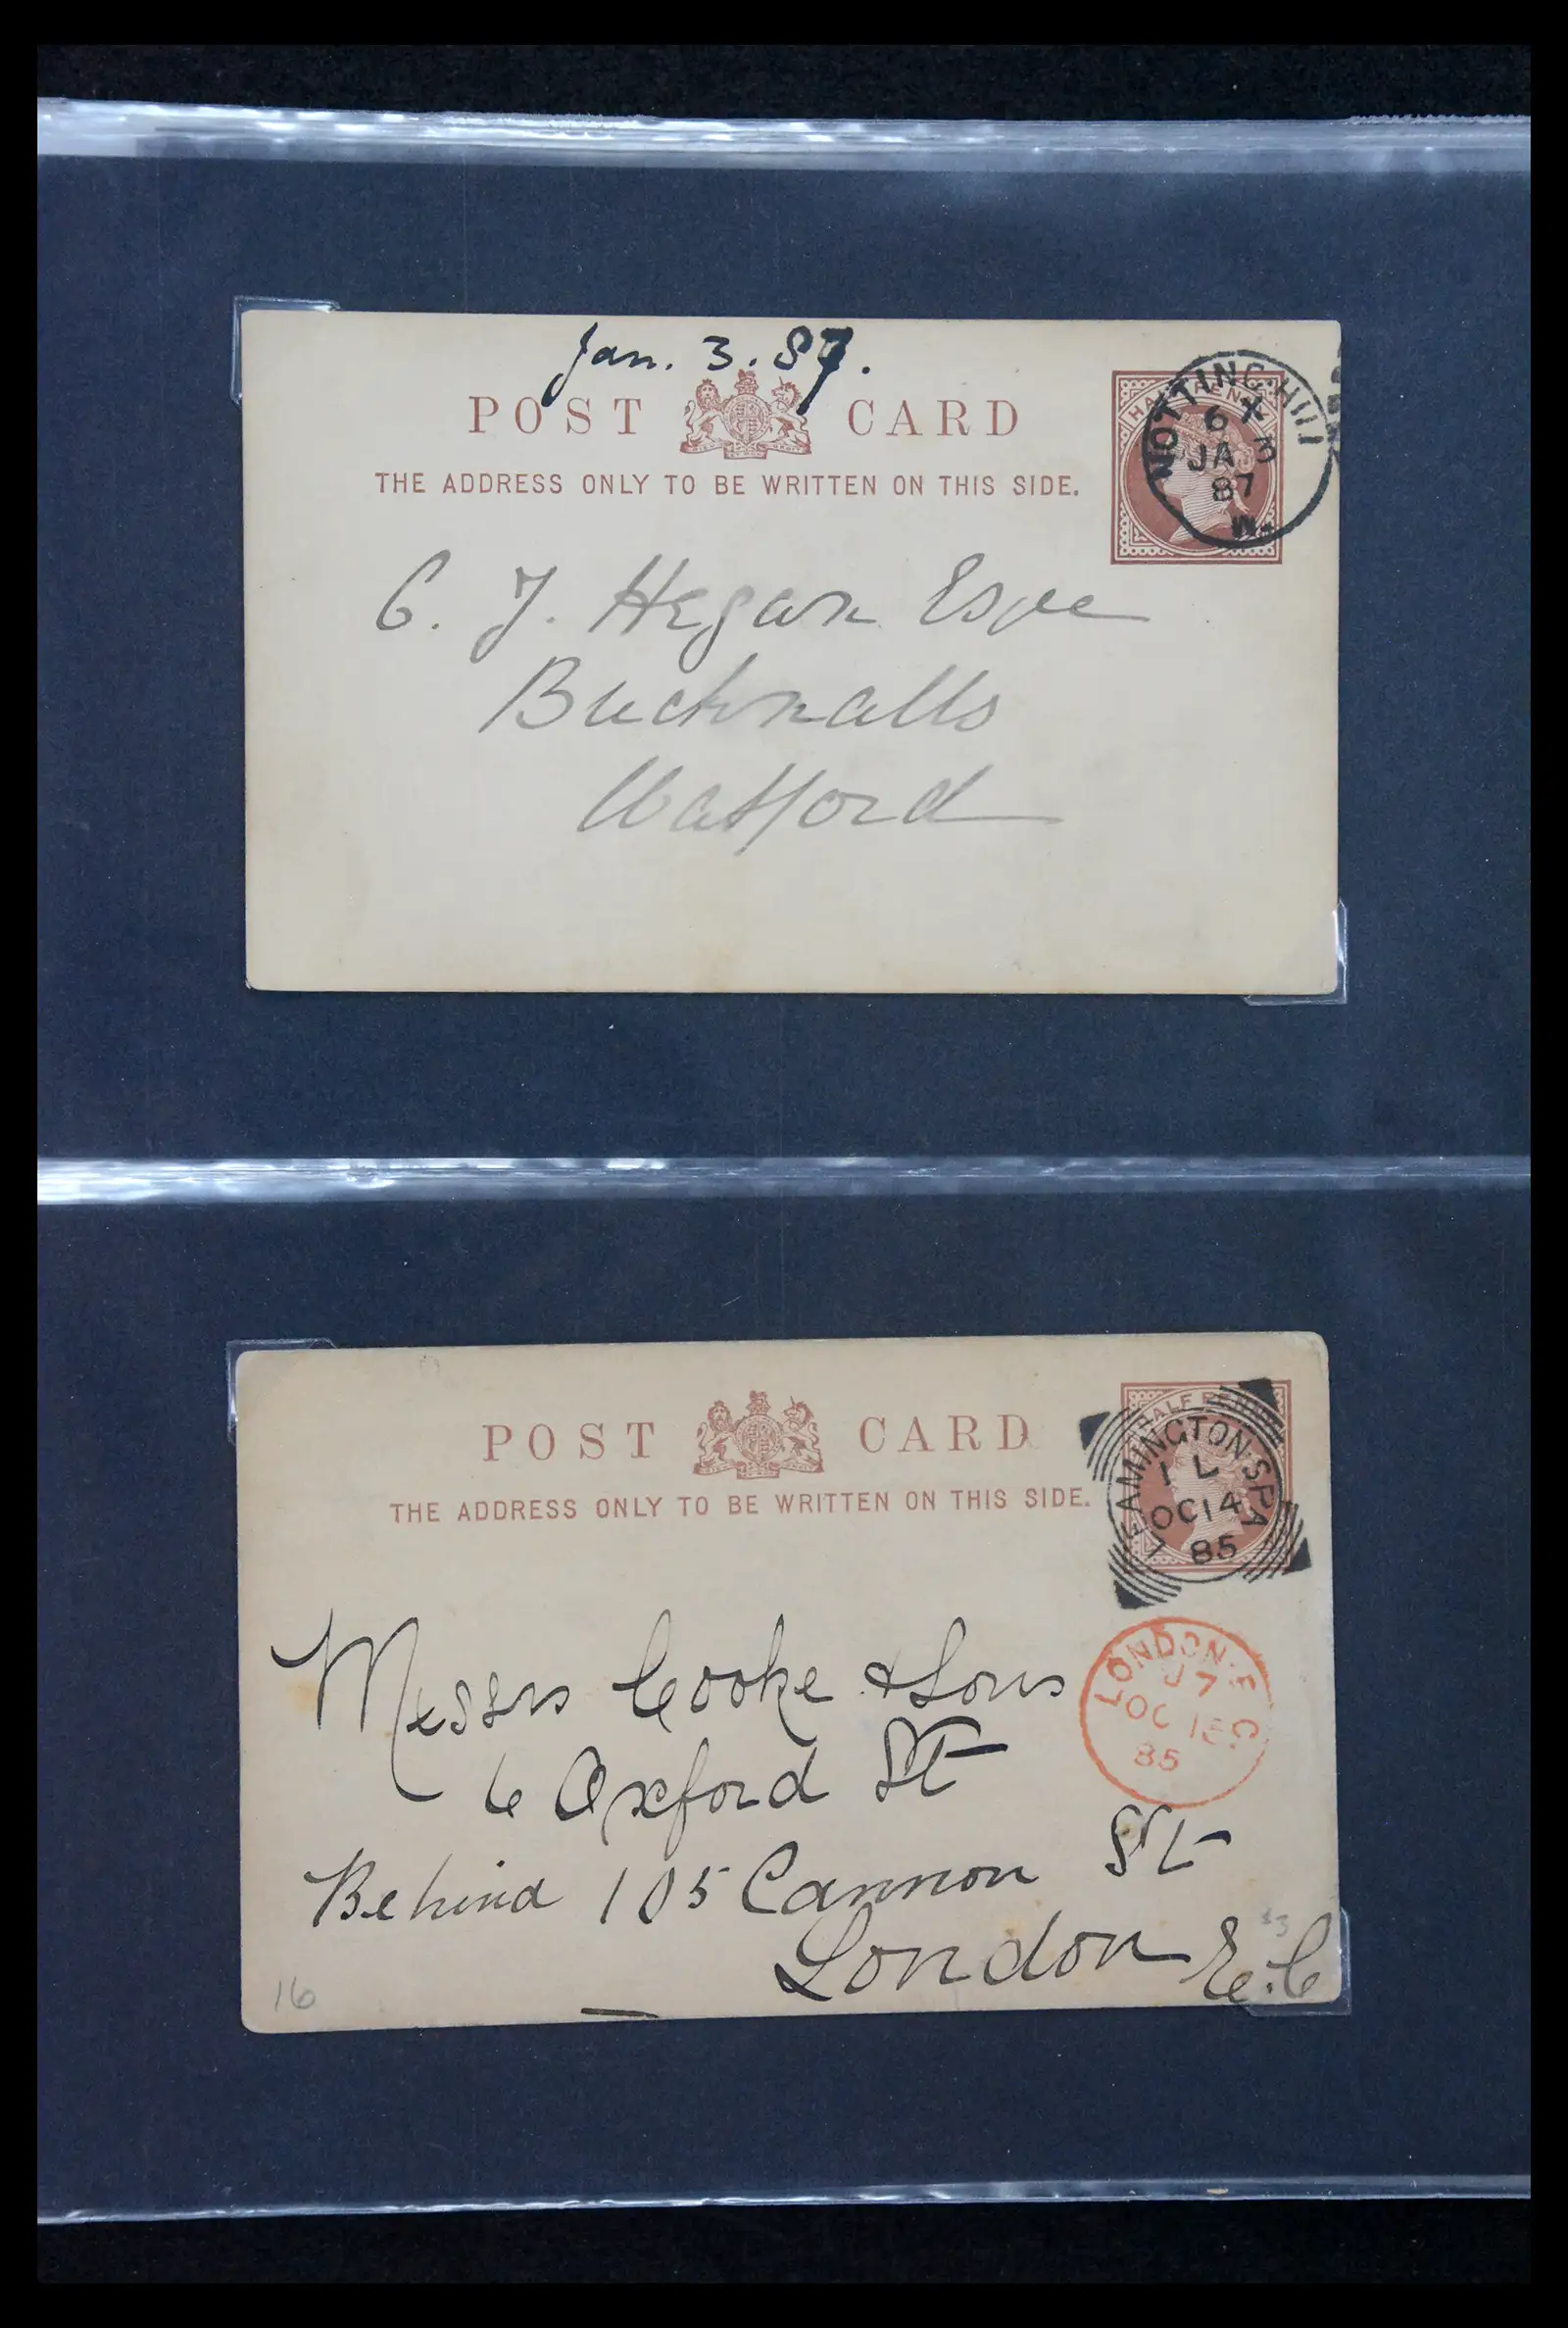 Jan. 3. 87.
POST CARD
THE ADDRESS ONLY TO BE WRITTEN ON THIS SIDE.
NOTTING·HILL
6 X
JA 3
87
W.
C. J. Hegan Esqre
Bucknalls
Watford
POST CARD
THE ADDRESS ONLY TO BE WRITTEN ON THIS SIDE.
HALF PENNY
LEAMINGTON·SPA
1 L
OC 14
85
LONDON·E.C
J 7
OC 15
85
Messrs Cooke & Sons
6 Oxford St
Behind 105 Cannon St
London E.C
16